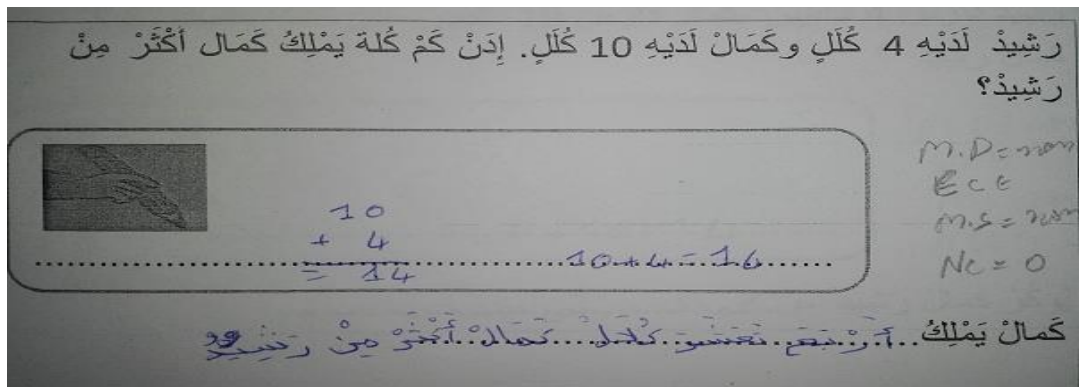 رَشِيدْ لَدَيْهِ 4 كُلَلٍ وكَمَالْ لَدَيْهِ 10 كُلَلٍ. إِذَنْ كَمْ كُلة يَمْلِكُ كَمَال أَكْثَرْ مِنْ
رَشِيدْ؟
M.D = non
E C E
M.S = non
Nc = 0
10
+ 4
= 14
10+4=16
كَمالْ يَمْلِكُ أَرْبَعَ عَشَرَ كُلَلْ كَمَالْ أَكْثَرْ مِنْ رَشِيد